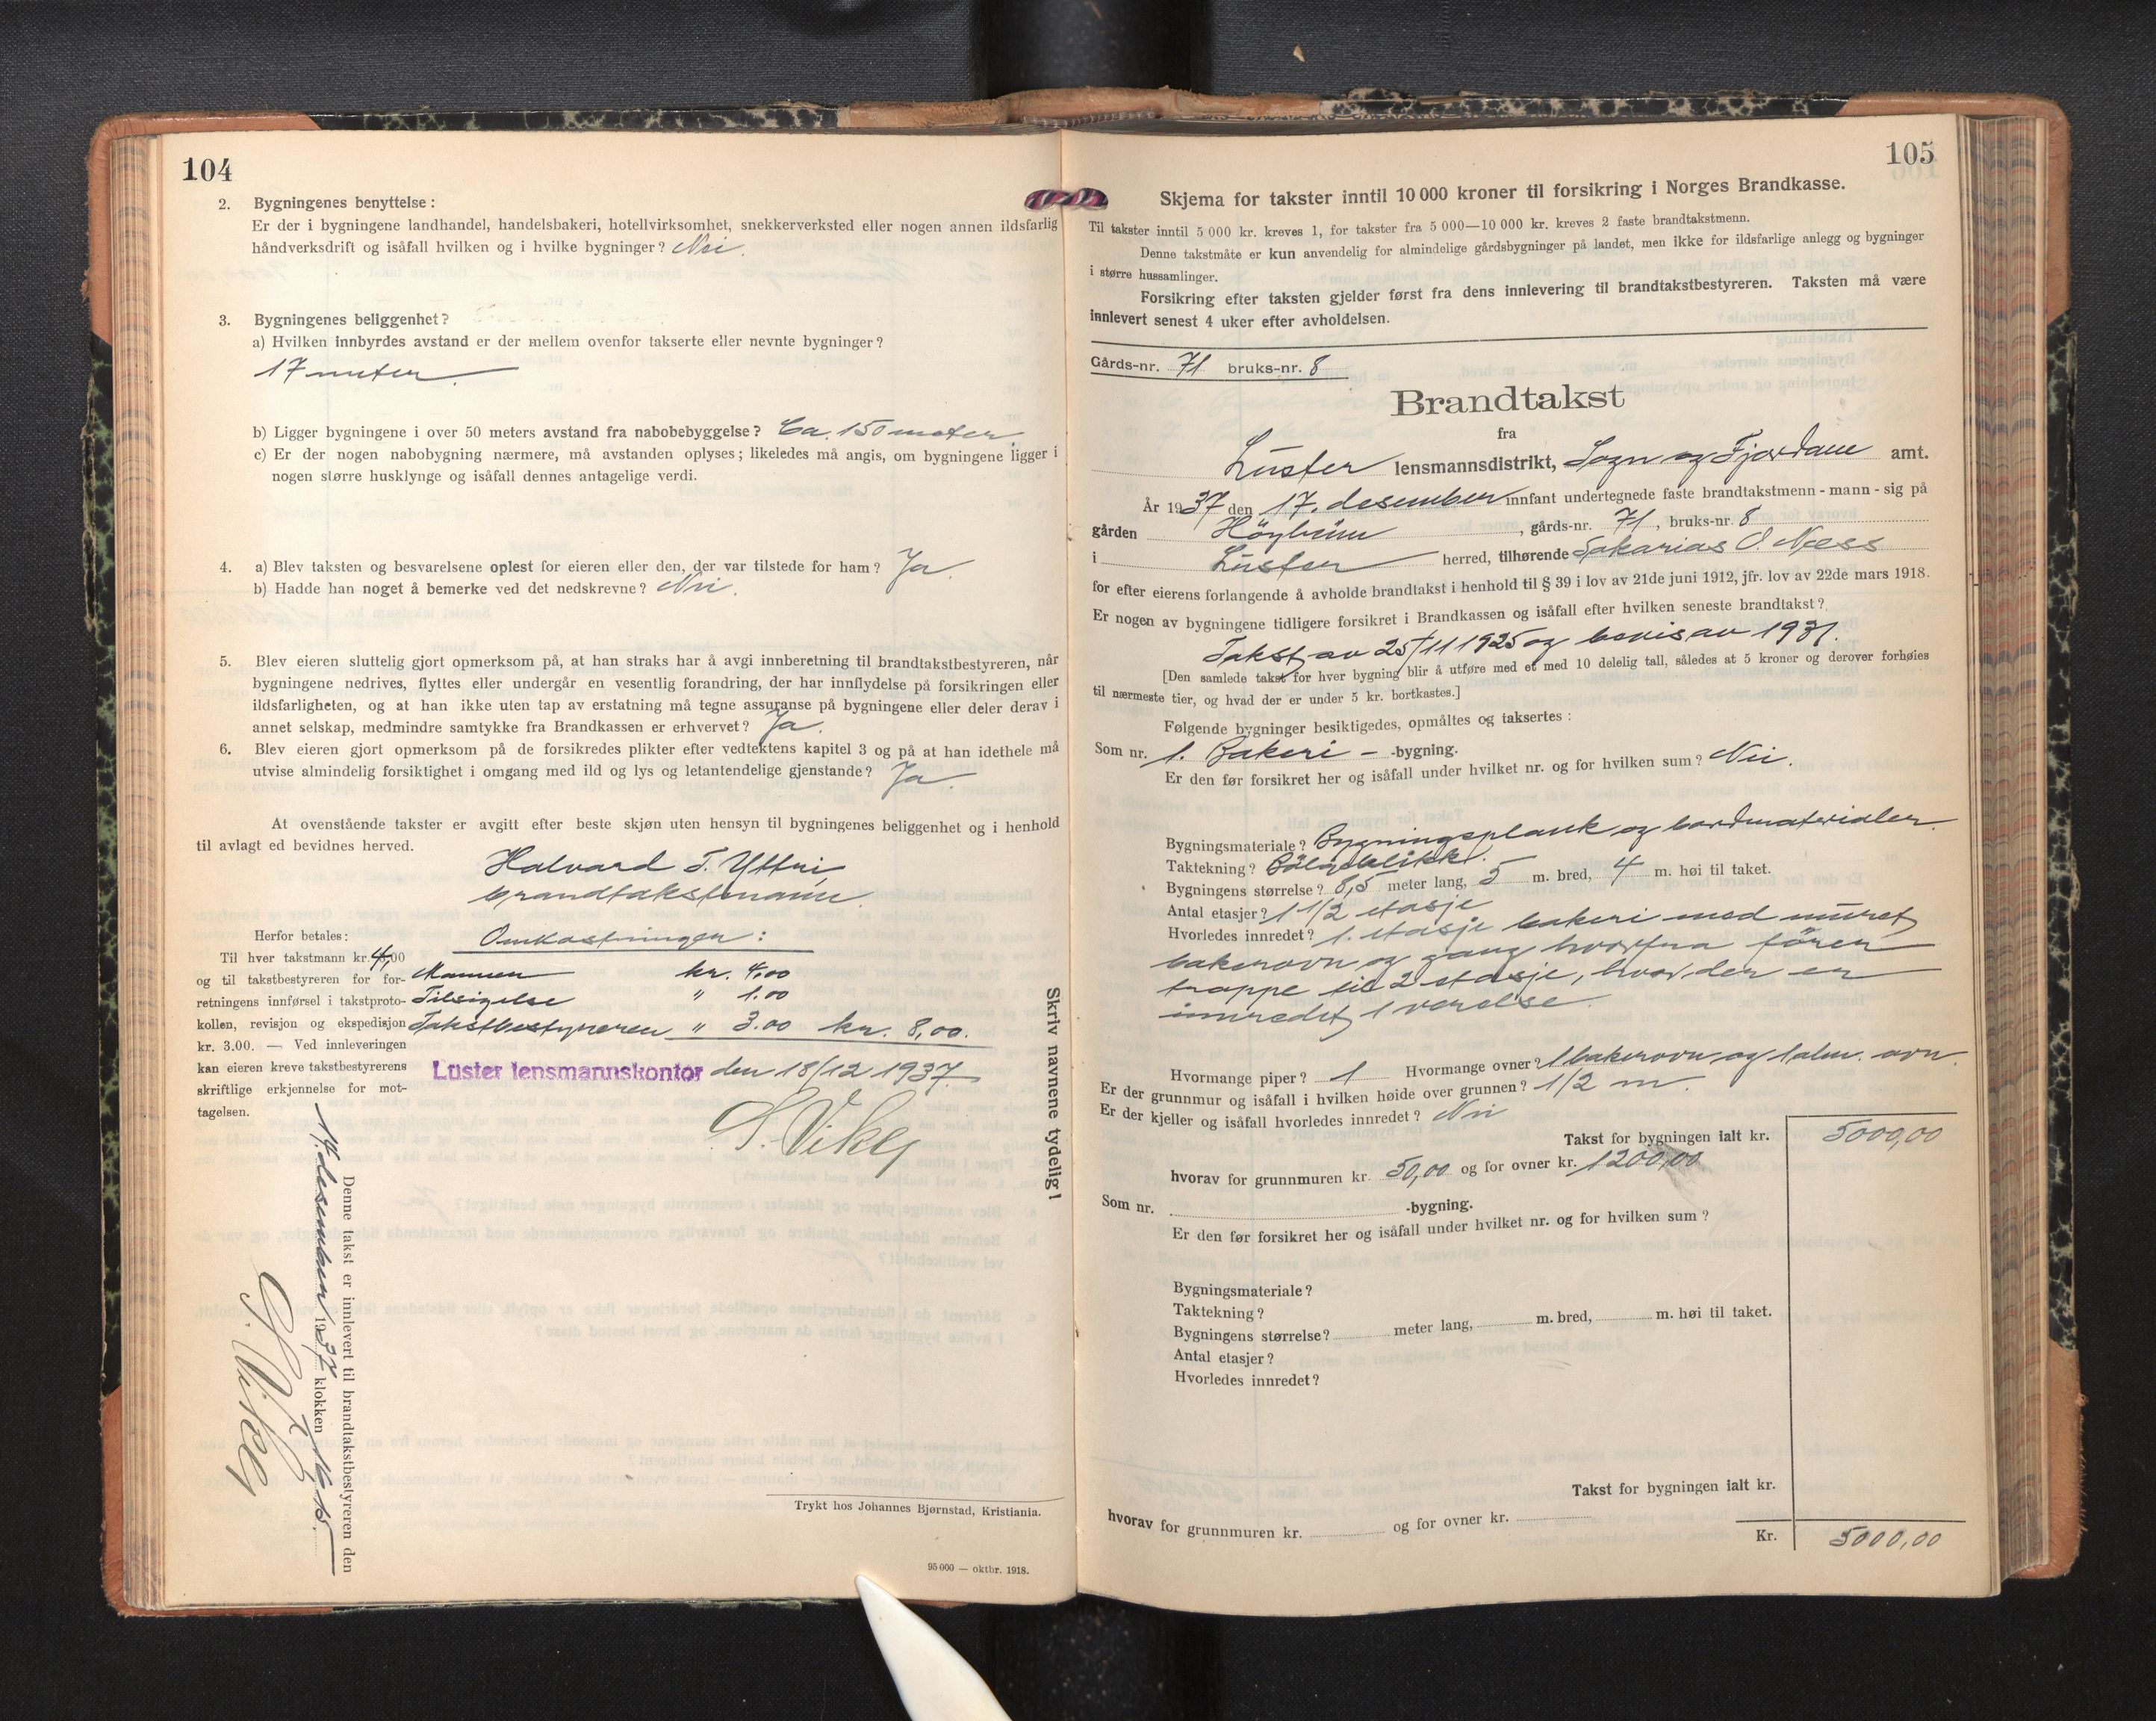 104
2. Bygningenes benyttelse:
Er der i bygningene landhandel, handelsbakeri, hotellvirksomhet, snekkerverksted eller nogen annen ildsfarlig
håndverksdrift og isåfall hvilken og i hvilke bygninger? Nei.
3. Bygningenes beliggenhet?
a) Hvilken innbyrdes avstand er der mellem ovenfor takserte eller nevnte bygninger?
17 meter.
b) Ligger bygningene i over 50 meters avstand fra nabobebyggelse? Ca. 150 meter.
c) Er der nogen nabobygning nærmere, må avstanden oplyses; likeledes må angis, om bygningene ligger i
nogen større husklynge og isåfall dennes antagelige verdi.
4. a) Blev taksten og besvarelsene oplest for eieren eller den, der var tilstede for ham? Ja.
b) Hadde han noget å bemerke ved det nedskrevne? Nei.
5. Blev eieren sluttelig gjort opmerksom på, at han straks har å avgi innberetning til brandtakstbestyreren, når
bygningene nedrives, flyttes eller undergår en vesentlig forandring, der har innflydelse på forsikringen eller
ildsfarligheten, og at han ikke uten tap av erstatning må tegne assuranse på bygningene eller deler derav i
annet selskap, medmindre samtykke fra Brandkassen er erhvervet? Ja.
6. Blev eieren gjort opmerksom på de forsikredes plikter efter vedtektens kapitel 3 og på at han idethele må
utvise almindelig forsiktighet i omgang med ild og lys og letantendelige gjenstande? Ja.
At ovenstående takster er avgitt efter beste skjøn uten hensyn til bygningenes beliggenhet og i henhold
til avlagt ed bevidnes herved.
Halvard T. Yttri,
brandtakstmann.
Herfor betales:
Til hver takstmann kr. 4,00
og til takstbestyreren for for-
retningens innførsel i takstproto-
kollen, revisjon og ekspedisjon
kr. 3.00. — Ved innleveringen
kan eieren kreve takstbestyrerens
skriftlige erkjennelse for mot-
tagelsen.
Omkostninger:
Mannen kr. 4,00
Tilsigelse " 1.00
Takstbestyreren " 3.00 kr. 8,00.
Luster lensmannskontor den 18/12 1937.
S. Vikey
Skriv navnene tydelig!
Denne takst er innlevert til brandtakstbestyreren den
desember 1937 klokken 16
Trykt hos Johannes Bjørnstad, Kristiania.
95 000 — oktbr. 1918.
105
Skjema for takster inntil 10 000 kroner til forsikring i Norges Brandkasse.
Til takster inntil 5 000 kr. kreves 1, for takster fra 5 000—10 000 kr. kreves 2 faste brandtakstmenn.
Denne takstmåte er kun anvendelig for almindelige gårdsbygninger på landet, men ikke for ildsfarlige anlegg og bygninger
i større hussamlinger.
Forsikring efter taksten gjelder først fra dens innlevering til brandtakstbestyreren. Taksten må være
innlevert senest 4 uker efter avholdelsen.
Gårds-nr. 71 bruks-nr. 8
Brandtakst
fra
Luster lensmannsdistrikt, Sogn og Fjordane amt.
År 1937 den 17. desember innfant undertegnede faste brandtakstmenn - mann - sig på
gården Höyheim, gårds-nr. 71, bruks-nr. 8
i Luster herred, tilhørende Sakarias O. Næss
for efter eierens forlangende å avholde brandtakst i henhold til § 39 i lov av 21de juni 1912, jfr. lov av 22de mars 1918.
Er nogen av bygningene tidligere forsikret i Brandkassen og isåfall efter hvilken seneste brandtakst?
Takst av 25/11 1925 og bevis av 1931.
[Den samlede takst for hver bygning blir å utføre med et med 10 delelig tall, således at 5 kroner og derover forhøies
til nærmeste tier, og hvad der er under 5 kr. bortkastes.]
Følgende bygninger besiktigedes, opmåltes og taksertes:
Som nr. 1. Bakeri - -bygning.
Er den før forsikret her og isåfall under hvilket nr. og for hvilken sum? Nei.
Bygningsmateriale? Bygningsplank og bordmaterialer.
Taktekning? Bölgeblikk.
Bygningens størrelse? 8,5 meter lang, 5 m. bred, 4 m. høi til taket.
Antal etasjer? 1 1/2 etasje
Hvorledes innredet? 1. etasje bakeri med muret
bakerovn og gang hvorfra förer
trappe til 2 etasje, hvor der er
innredet 1 værelse.
Hvormange piper? 1 Hvormange ovner? 1 bakerovn og 1 alm. ovn
Er der grunnmur og isåfall i hvilken høide over grunnen? 1/2 m.
Er der kjeller og isåfall hvorledes innredet? Nei
Takst for bygningen ialt kr. 5000,00
hvorav for grunnmuren kr. 50,00 og for ovner kr. 1200,00
Som nr. -bygning.
Er den før forsikret her og isåfall under hvilket nr. og for hvilken sum?
Bygningsmateriale?
Taktekning?
Bygningens størrelse? meter lang, m. bred, m. høi til taket.
Antal etasjer?
Hvorledes innredet?
Takst for bygningen ialt kr.
hvorav for grunnmuren kr. og for ovner kr.
Kr. 5000,00